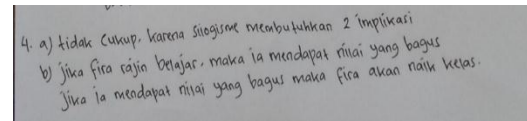 4. a) tidak cukup. karena silogisme membutuhkan 2 implikasi
b) jika fira rajin belajar. maka ia mendapat nilai yang bagus
Jika ia mendapat nilai yang bagus maka fira akan naik kelas.